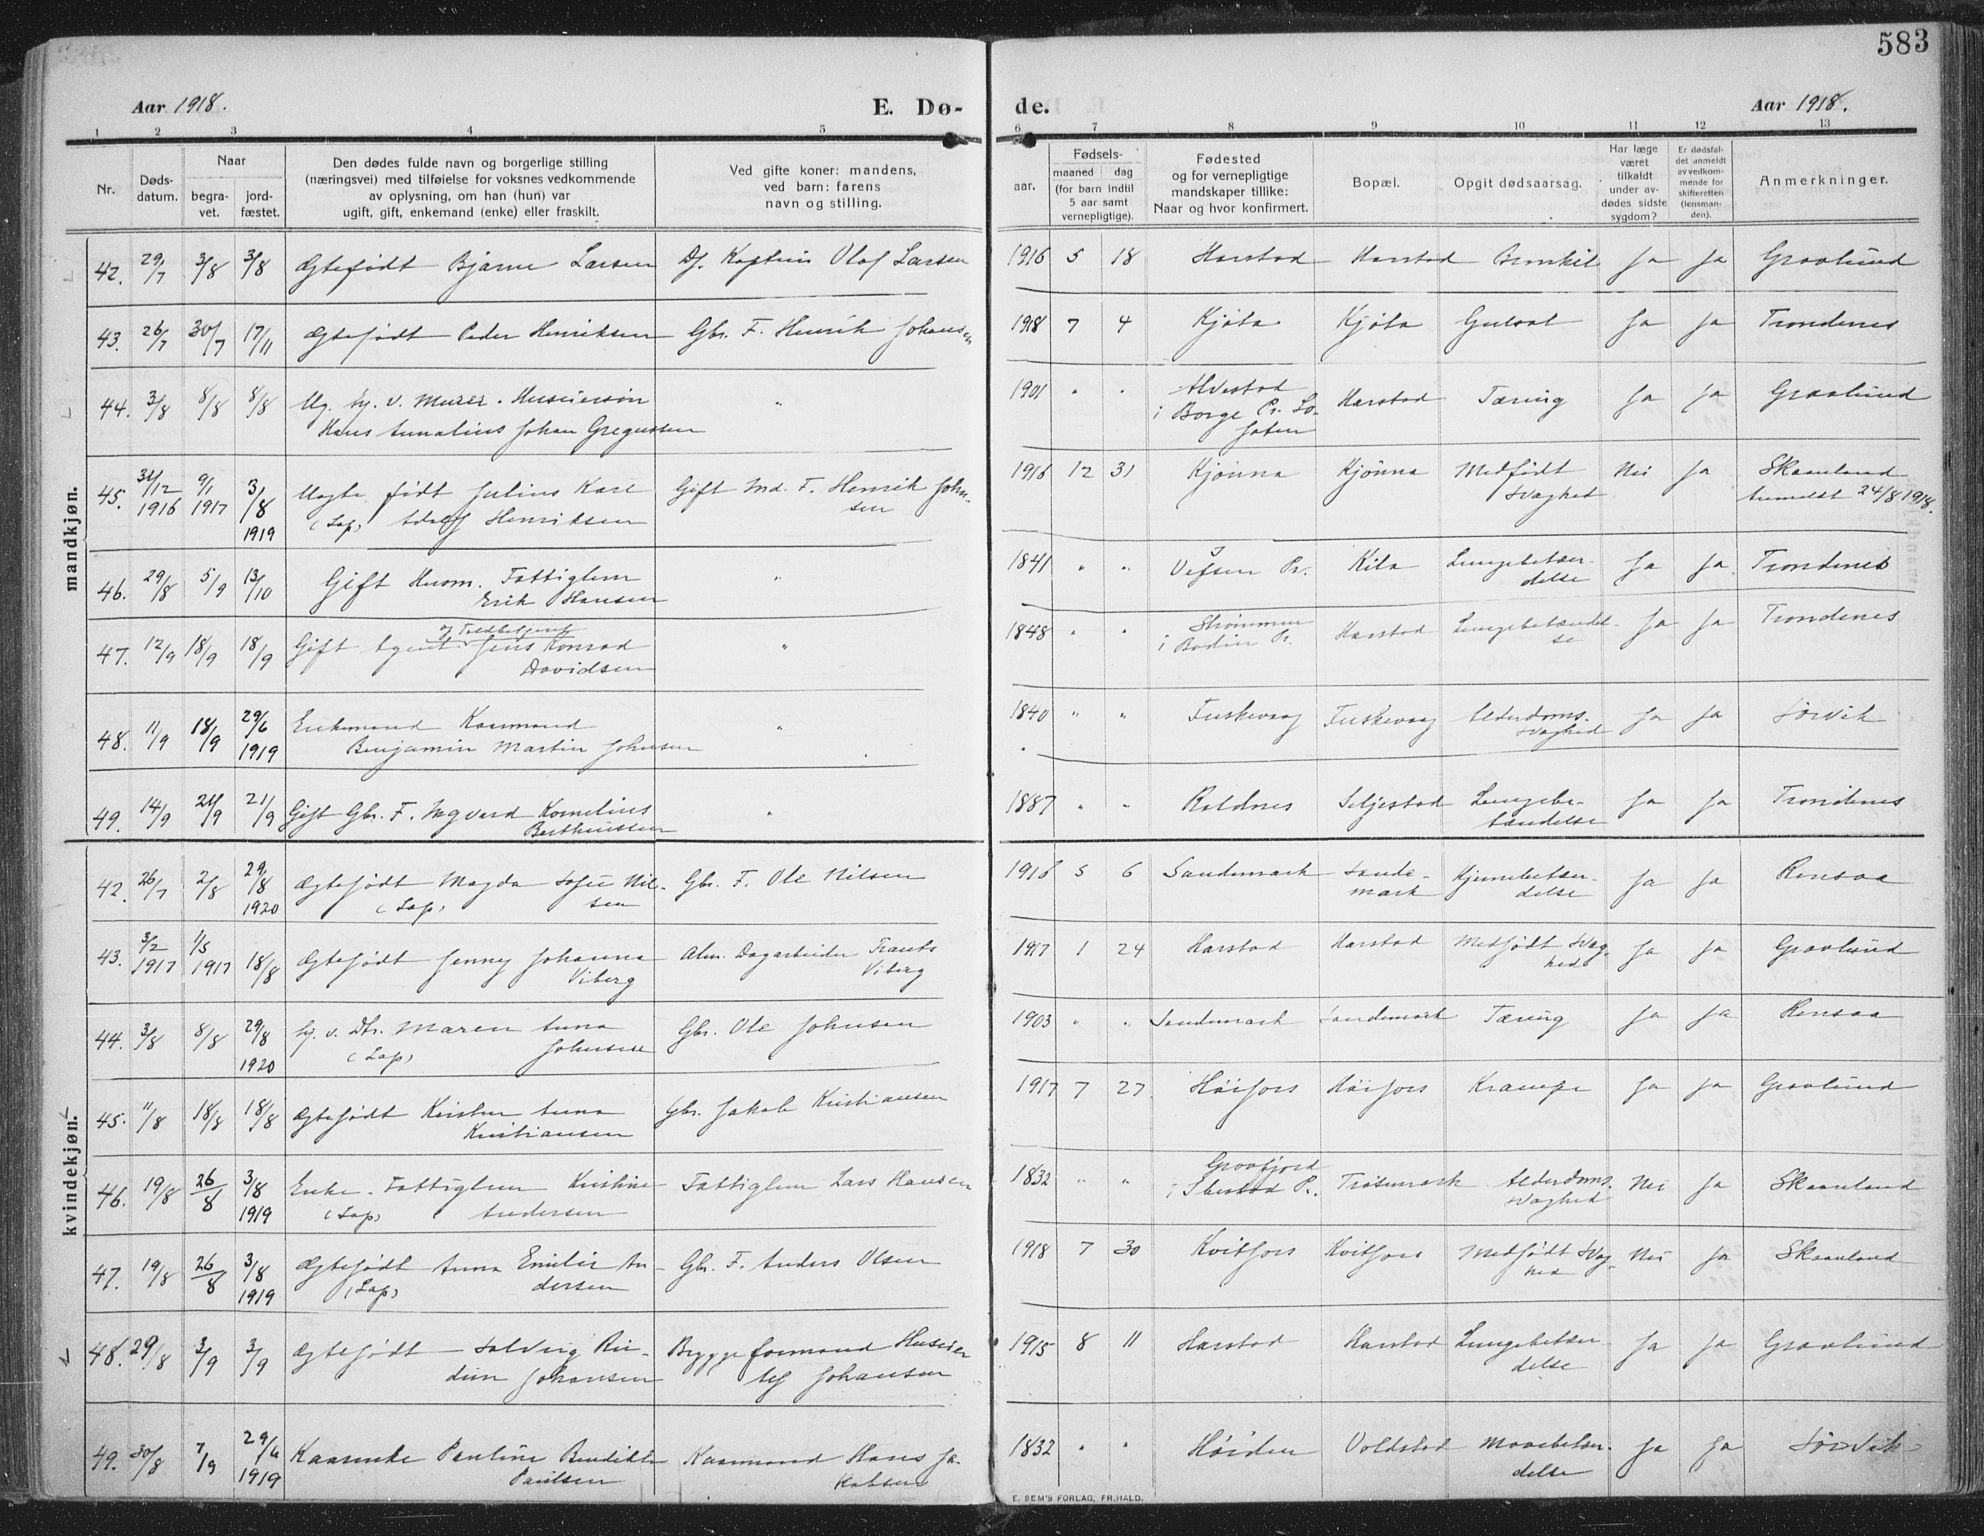 583
Aar 1918.
E. Dø-
de.
Aar 1918.
1 2 3 4 5 6 7 8 9 10 11 12 13
Nr.
Døds-
datum.
Naar
begra-
vet.
jord-
fæstet.
Den dødes fulde navn og borgerlige stilling
(næringsvei) med tilføielse for voksnes vedkommende
av oplysning, om han (hun) var
ugift, gift, enkemand (enke) eller fraskilt.
Ved gifte koner: mandens,
ved barn: farens
navn og stilling.
Fødsels-
aar.
maaned dag
(for barn indtil
5 aar samt
vernepligtige).
Fødested
og for vernepligtige
mandskaper tillike:
Naar og hvor konfirmert.
Bopæl.
Opgit dødsaarsag.
Har læge
været
tilkaldt
under av-
dødes sidste
sygdom?
Er dødsfal-
det anmeldt
av vedkom-
mende for
skifteretten
(lensman-
den).
Anmerkninger.
mandkjøn.
42. 29/7 3/8 3/8 Ægtefødt Bjarne Larsen Olaf Larsen 1916 5 18 Harstad Harstad Ja Ja Gravlund
43. 26/7 30/7 17/11 Ægtefødt Peder Henriksen Gbr. F. Henrik Johansen 1918 7 4 Kjøta Kjøta Gulsot Ja Ja Trondenes
44. 3/8 8/8 8/8 Ug. hj. v. Murer.
Hans Johan Gregussen " 1901 " " Alvestad
i Borge Pr. Lo-
foten Harstad Tæring Ja Ja Gravlund
45. 31/12 1916 9/1 1917 3/8 1919 Uægte født Julius Karl
(Lap) Adolf Henriksen Gift Md. F. Henrik John-
sen 1916 12 31 Kjønna Kjønna Medfødt
Svaghed Nei Ja Skaanland
Anmeldt 24/8 1918.
46. 29/8 5/9 13/10 Gift Husm. Fattiglem
Erik Hansen " 1841 " " Vefsen Pr. Kila Lungebetæn-
delse Ja Ja Trondenes
47. 12/9 18/9 18/9 Gift Agent og Toldbetjent Jens Konrad
Davidsen " 1848 " " Strømmen
i Bodin Pr. Harstad Lungebetændel-
se Ja Ja Trondenes
48. 11/9 18/9 29/6 1919 Enkemand Kaarmand
Benjamin Martin Johnsen " 1840 " " Fuskevaag Fuskevaag Alderdoms-
svaghed Ja Ja Sørvik
49. 14/9 21/9 21/9 Gift Gbr. F. Ingvard Kornelius
Bertheussen " 1887 " " Roldnes Seljestad Lungebe-
tændelse Ja Ja Trondenes
kvindekjøn.
42. 26/7 2/8 29/8 1920 Ægtefødt Magda Sofie Nil-
(Lap) sen Gbr. F. Ole Nilsen 1916 5 6 Sandemark Sande-
mark Hjernebetæn-
delse Ja Ja Rensaa
43. 3/2 1917 1/5 1917 18/8 Ægtefødt Jenny Johanna
Viberg Alm. Dagarbeider Frants
Viberg 1917 1 24 Harstad Harstad Medfødt Svag-
hed Ja Ja Gravlund
44. 3/8 8/8 29/8 1920 hj. v. Dtr. Maren Anna
(Lap) Johnsen Gbr. Ole Johnsen 1903 " " Sandemark Sandemark Tæring Ja Ja Rensaa
45. 11/8 18/8 18/8 Ægtefødt Anna
Kristiansen Gbr. Jakob Kristiansen 1917 7 27 Høifors Høifors Krampe Ja Ja Gravlund
46. 19/8 26/8 3/8 1919 Enke. Fattiglem Kristine
(Lap) Andersen Fattiglem Lars Hansen 1832 " " Graafjord
i Ibestad Pr. Trøsemark Alderdoms-
svaghed Nei Ja Skaanland
47. 19/8 26/8 3/8 1919 Ægtefødt Anna Emilie An-
(Lap) dersen Gbr. F. Anders Olsen 1918 7 30 Kvitfors Kvitfors Medfødt Svag-
hed Nei Ja Skaanland
48. 29/8 3/9 3/9 Ægtefødt Solveig
Johansen Bryggeformand
Johansen 1915 8 11 Harstad Harstad Lungebetæn-
delse Ja Ja Gravlund
49. 30/8 7/9 29/6 1919 Kaarenke Pauline Benedikte
Paulsen Kaarmand Hans Ja-
kobsen 1832 " " Høiden Voldstad Mavebetæn-
delse Ja Ja Sørvik
E. SEM'S FORLAG, FR.HALD.